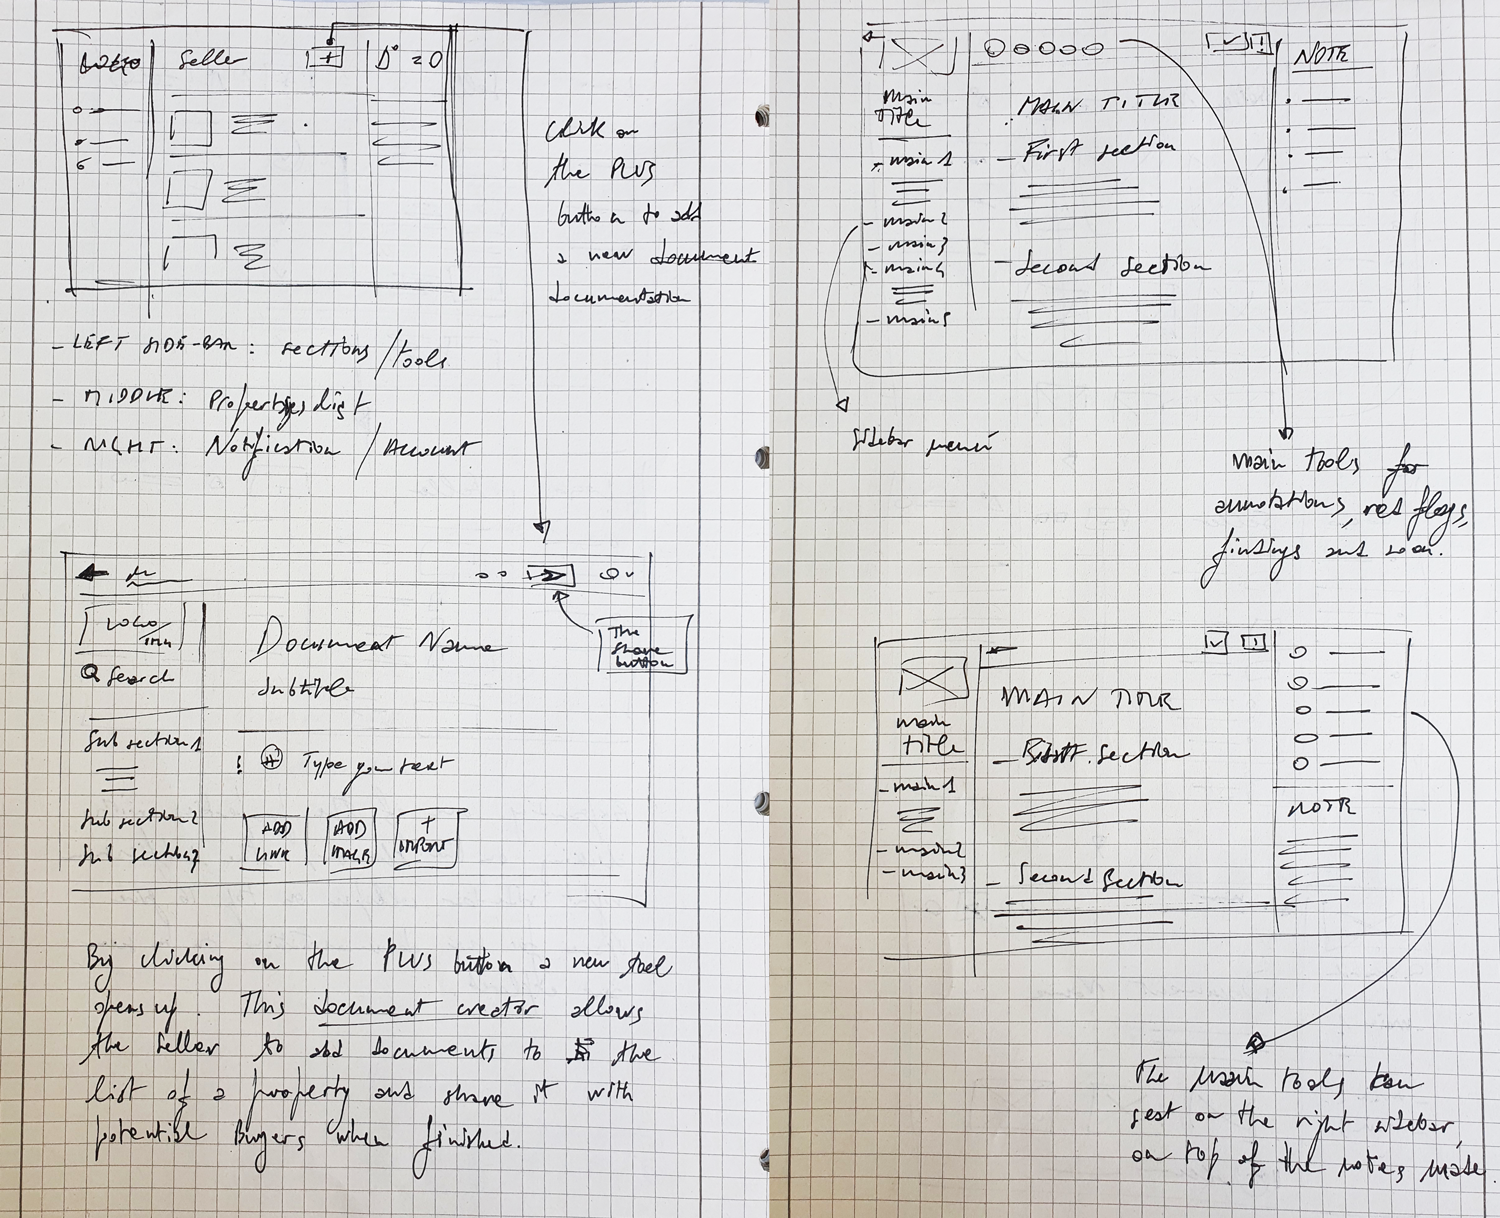 Seller
+
Click on
the PLUS
button to add
a new document
documentation
- LEFT SIDE-BAR: sections / tools
- MIDDLE: Properties list
- RIGHT: Notification / Account
LOGO /
Search
Sub section 1
Sub section 2
Document Name
Subtitle
+ Type your text
ADD
LINK
ADD
IMAGE
+
IMPORT
The
share
button
By clicking on the PLUS button a new tool
opens up. This document creator allows
the Seller to add documents to the
list of a property and share it with
potential Buyers when finished.
Main
Title
- main 1
- main 2
- main 3
- main 4
- main 5
MAIN TITLE
- First section
- Second section
NOTE
Sidebar menu
Main tools for
annotations, red flags,
findings and so on.
main
title
- main 1
- main 2
- main 3
MAIN TITLE
section
- Second Section
NOTE
The main tools can
rest on the right sidebar,
on top of the notes made.